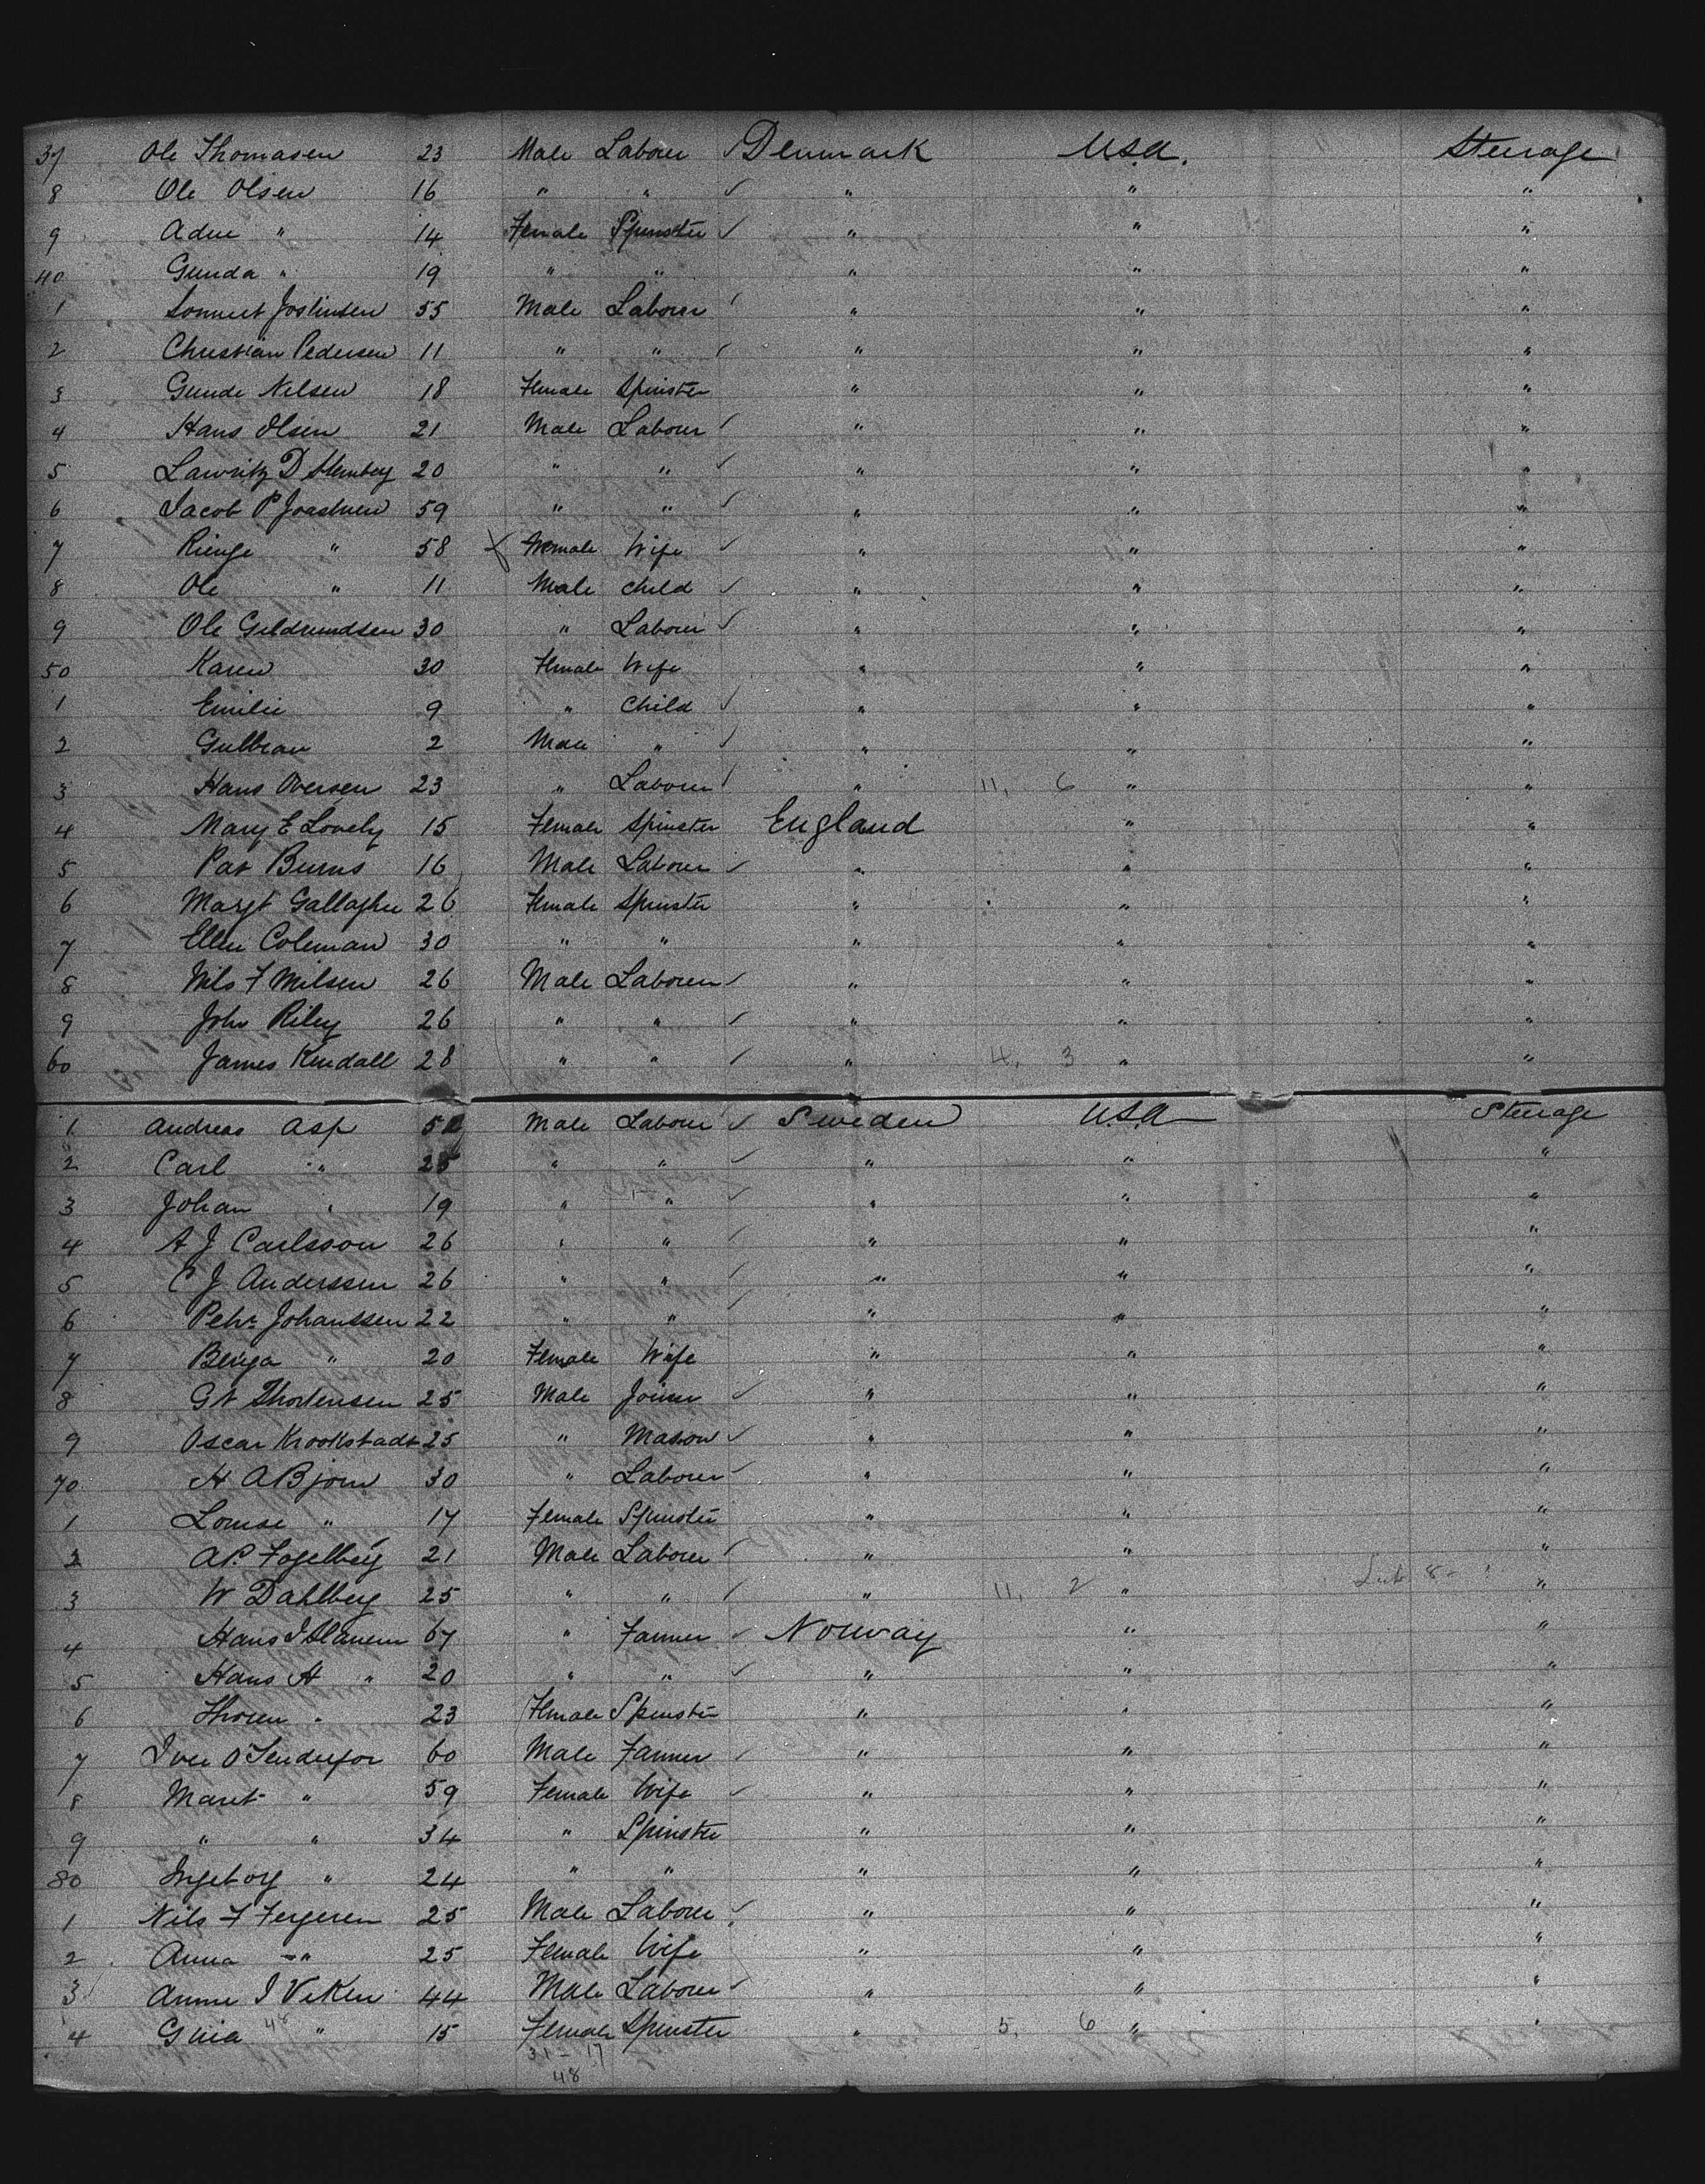 37 Ole Thomasen 23 Male Laborer Denmark U.S.A. Steerage
8 Ole Olsen 16 " " " " "
9 Adne " 14 Female Spinster " " "
40 Gunda " 19 " " " " "
1 Jostinsen 55 Male Laborer " " "
2 Christian Pedersen 11 " " " " "
3 Gunde Nilsen 18 Female Spinster " " "
4 Hans Olsen 21 Male Laborer " " "
5 Lawritz D 20 " " " " "
6 Jacob P 59 " " " " "
7 " 58 Female Wife " " "
8 Ole " 11 Male Child " " "
9 Ole 30 " Laborer " " "
50 Karen 30 Female Wife " " "
1 Emilie 9 " Child " " "
2 Gulbran 2 Male " " " "
3 Hans Oversen 23 " Laborer " 11, 6 " "
4 Mary E Lovely 15 Female Spinster England " "
5 Pat Burns 16 Male Laborer " " "
6 Margt Gallagher 26 Female Spinster " " "
7 Ellen Coleman 30 " " " " "
8 Nils F Nilsen 26 Male Laborer " " "
9 John Riley 26 " " " " "
60 James Kendall 28 " " " 4, 3 " "
1 Andreas Asp Male Laborer Sweden U.S.A Steerage
2 Carl " " " " " "
3 Johan " 19 " " " " "
4 A J Carlsson 26 " " " " "
5 C J Anderssen 26 " " " " "
6 Petr Johanssen 22 " " " " "
7 Benga " 20 Female Wife " " "
8 Thortensen 25 Male Joiner " " "
9 Oscar Krookstadt 25 " Mason " " "
70 H A Bjorn 30 " Laborer " " "
1 Louise " 17 Female Spinster " " "
2 A.P. Fogelberg 21 Male Laborer " " "
3 W Dahlberg 25 " " " 11, 2 " "
4 Hans 67 " Farmer Norway " "
5 Hans H " 20 " " " " "
6 Thoren " 23 Female Spinster " " "
7 Iver O 60 Male Farmer " " "
8 Maret " 59 Female Wife " " "
9 " " 34 " Spinster " " "
80 Ingeborg " 24 " " " " "
1 Nils F 25 Male Laborer " " "
2 Anna " 25 Female Wife " " "
3 Anne I Viken 44 Male Laborer " " "
4 Gina " 15 Female Spinster " 5, 6 " "
31 - 17
48